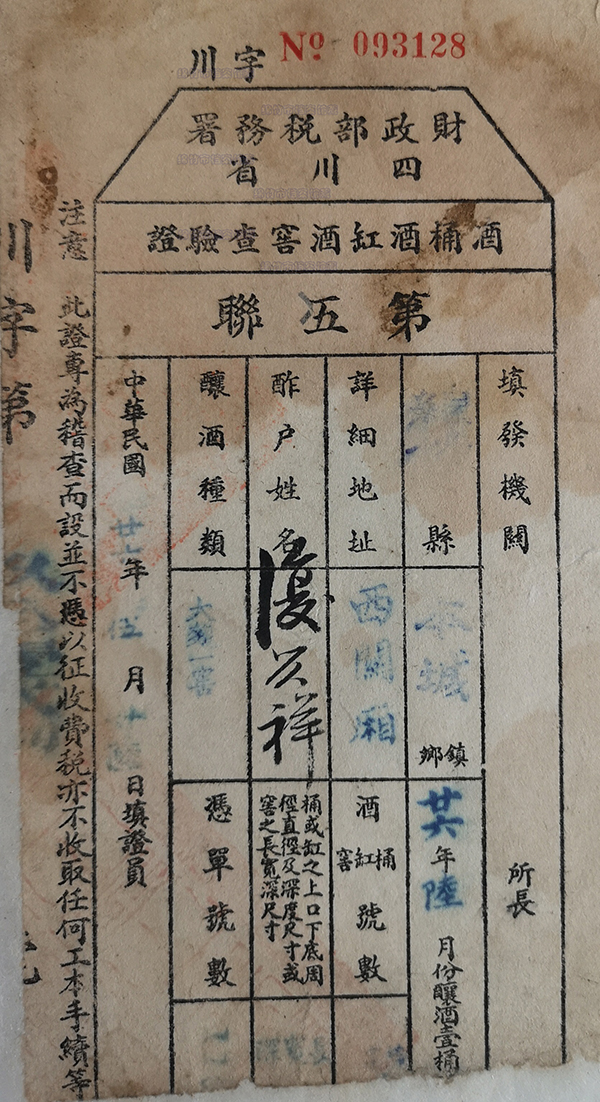 川字 № 093128
財政部税務署
四川省
酒桶酒缸酒窖查驗證
第五聯
填發機關
所長
縣
鄉鎮
本城
廿六年陸月份釀酒壹桶
詳細地址
西關廂
酒桶缸窖號數
酢户姓名
復公祥
桶或缸之上口下底周徑直徑及深度尺寸或窖之長寬深尺寸
釀酒種類
憑單號數
中華民國 廿六年 伍月 日填證員
注意 此證專為稽查而設並不憑以征收費税亦不收取任何工本手續等
川字第